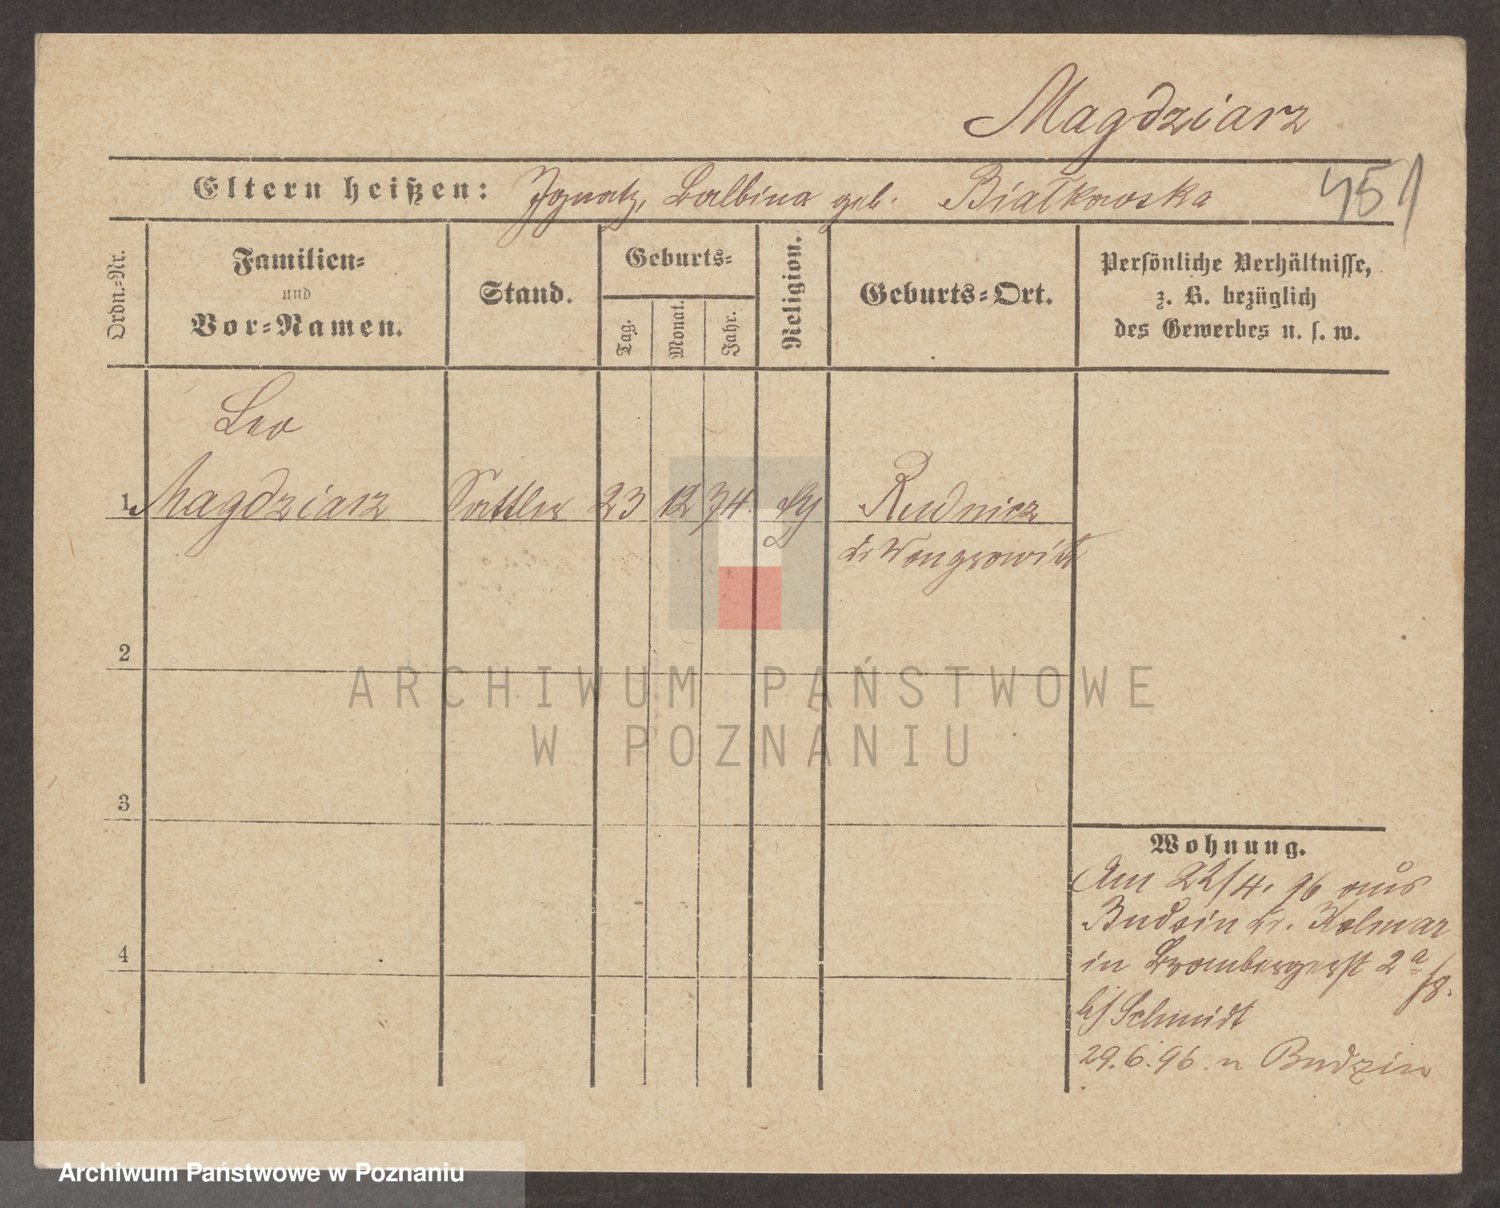 Magdziarz
Eltern heißen: Ignatz, Balbina geb. Białkowska
451
Ordn.-Nr.
Familien-
und
Vor-Namen.
Stand.
Geburts-
Tag.
Monat.
Jahr.
Religion.
Geburts-Ort.
Persönliche Verhältnisse,
z. B. bezüglich
des Gewerbes u. s. w.
Leo
1 Magdziarz Sattler 23 12 74 Rudnicz
Kr Wongrowitz
2
3
4
Wohnung.
Am 22/4. 96 aus
Budsin Kr. Kolmar
in Brombergerst 2a/8.
b/ Schmidt
29.6.96. n Budzin
ARCHIWUM PAŃSTWOWE
W POZNANIU
Archiwum Państwowe w Poznaniu